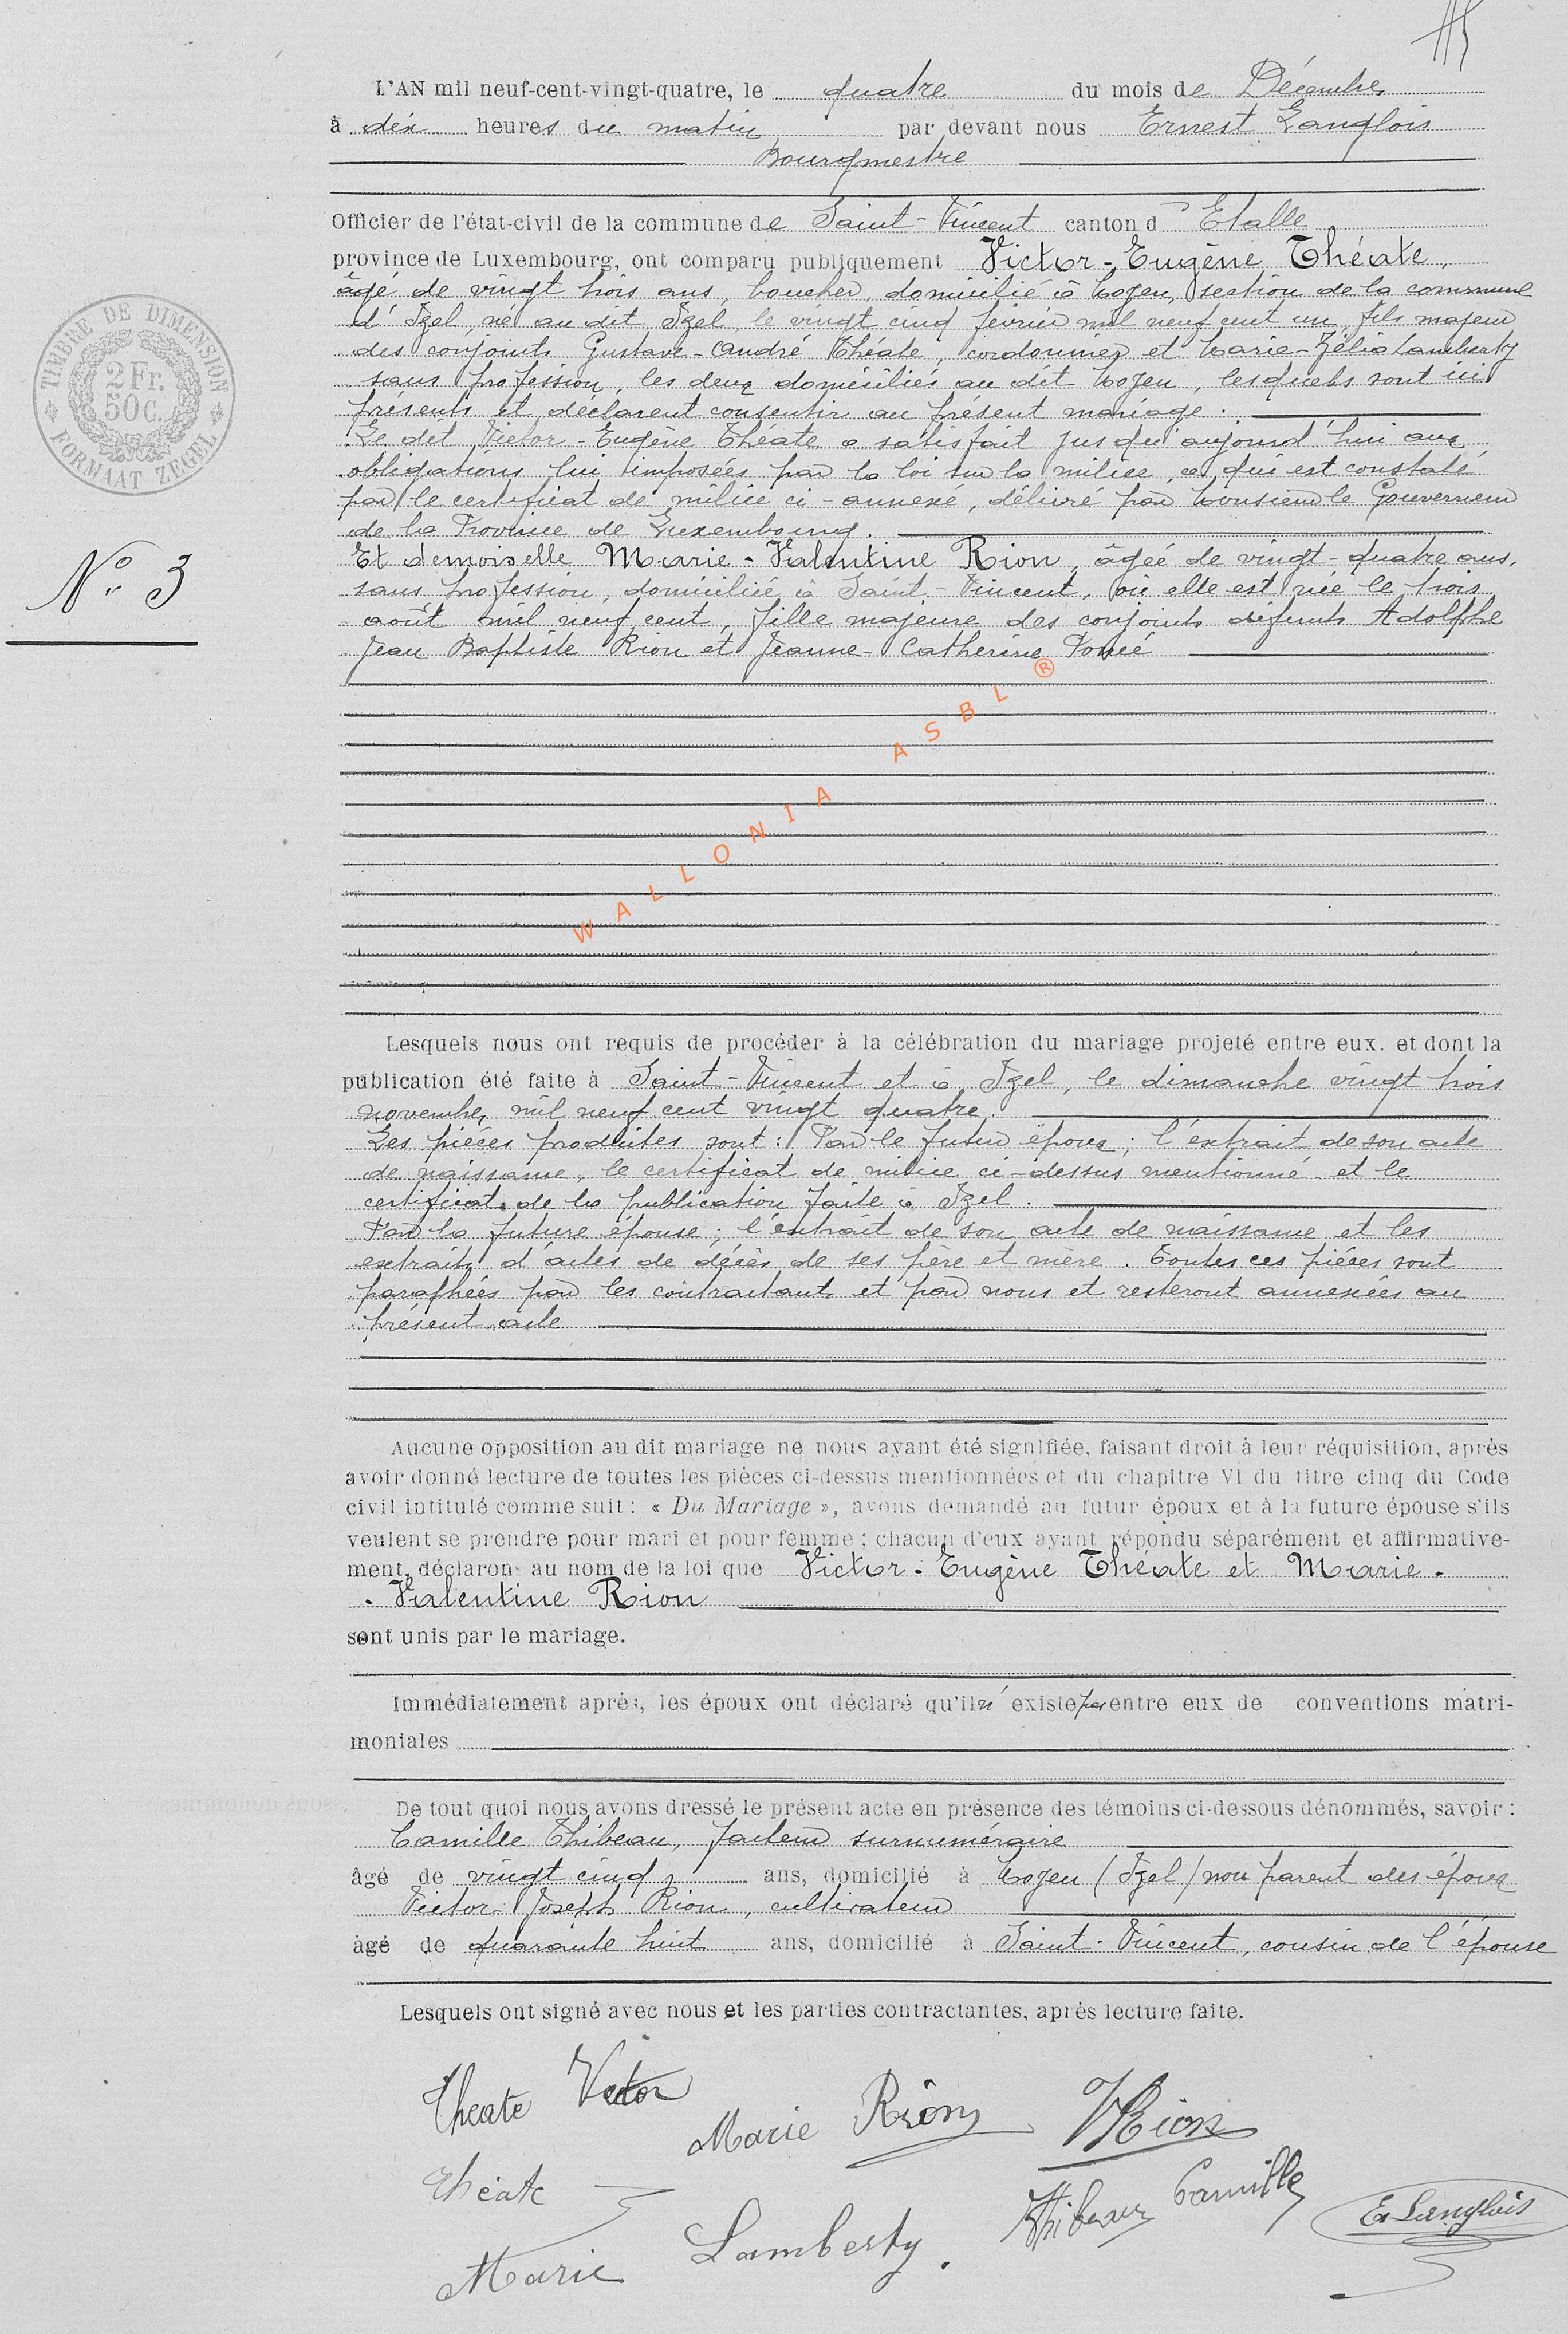 115
L'AN mil neuf-cent-vingt-quatre, le quatre du mois de Décembre
à dix heures du matin par devant nous Ernest Langlois
Bourgmestre
Officier de l'état-civil de la commune de Saint-Vincent canton d'Etalle
province de Luxembourg, ont comparu publiquement Victor-Eugène Théate,
âgé de vingt trois ans, boucher, domicilié à Moyen, section de la commune
d'Izel, né au dit Izel, le vingt cinq février mil neuf cent un, fils majeur
des conjoints Gustave-André Théate, cordonnier et Marie-Zélia Lamberty
sans profession, les deux domiciliés au dit Moyen, lesquels sont ici
présents et déclarent consentir au présent mariage.
Le dit Victor-Eugène Théate a satisfait jusqu'aujourd'hui aux
obligations lui imposées par la loi sur la milice, ce qui est constaté
par le certificat de milice ci-annexé, délivré par Monsieur le Gouverneur
de la Province de Luxembourg.
Et demoiselle Marie-Valentine Rion, âgée de vingt-quatre ans,
sans profession, domiciliée à Saint-Vincent, où elle est née le trois
août mil neuf cent, fille majeure des conjoints défunts Adolphe
Jean Baptiste Rion et Jeanne-Catherine
TIMBRE DE DIMENSION
2 Fr.
50 C.
FORMAAT ZEGEL
N° 3
WALLONIA ASBL ®
Lesquels nous ont requis de procéder à la célébration du mariage projeté entre eux. et dont la
publication été faite à Saint-Vincent et à Izel, le dimanche vingt trois
novembre mil neuf cent vingt quatre.
Les pièces produites sont: Par le futur époux; l'extrait de son acte
de naissance, le certificat de milice ci-dessus mentionné et le
certificat de la publication faite à Izel.
Par la future épouse; l'extrait de son acte de naissance et les
extraits d'actes de décès de ses père et mère. Toutes ces pièces sont
paraphées par les contractants et par nous et resteront annexées au
présent acte
Aucune opposition au dit mariage ne nous ayant été signifiée, faisant droit à leur réquisition, après
avoir donné lecture de toutes les pièces ci-dessus mentionnées et du chapitre VI du titre cinq du Code
civil intitulé comme suit: « Du Mariage », avons demandé au futur époux et à la future épouse s'ils
veulent se prendre pour mari et pour femme; chacun d'eux ayant répondu séparément et affirmative-
ment, déclarons au nom de la loi que Victor-Eugène Théate et Marie-
-Valentine Rion
sont unis par le mariage.
Immédiatement après, les époux ont déclaré qu'il n'existe pas entre eux de conventions matri-
moniales
De tout quoi nous avons dressé le présent acte en présence des témoins ci-dessous dénommés, savoir:
Camille Thibeau, facteur surnuméraire
âgé de vingt cinq ans, domicilié à Moyen (Izel) non parent des époux
Victor Joseph Rion, cultivateur
âgé de quarante huit ans, domicilié à Saint-Vincent, cousin de l'épouse
Lesquels ont signé avec nous et les parties contractantes, après lecture faite.
Theate Victor
Marie Rion
V Rion
Théate
Thibeau Camille
E. Langlois
Marie Lamberty.